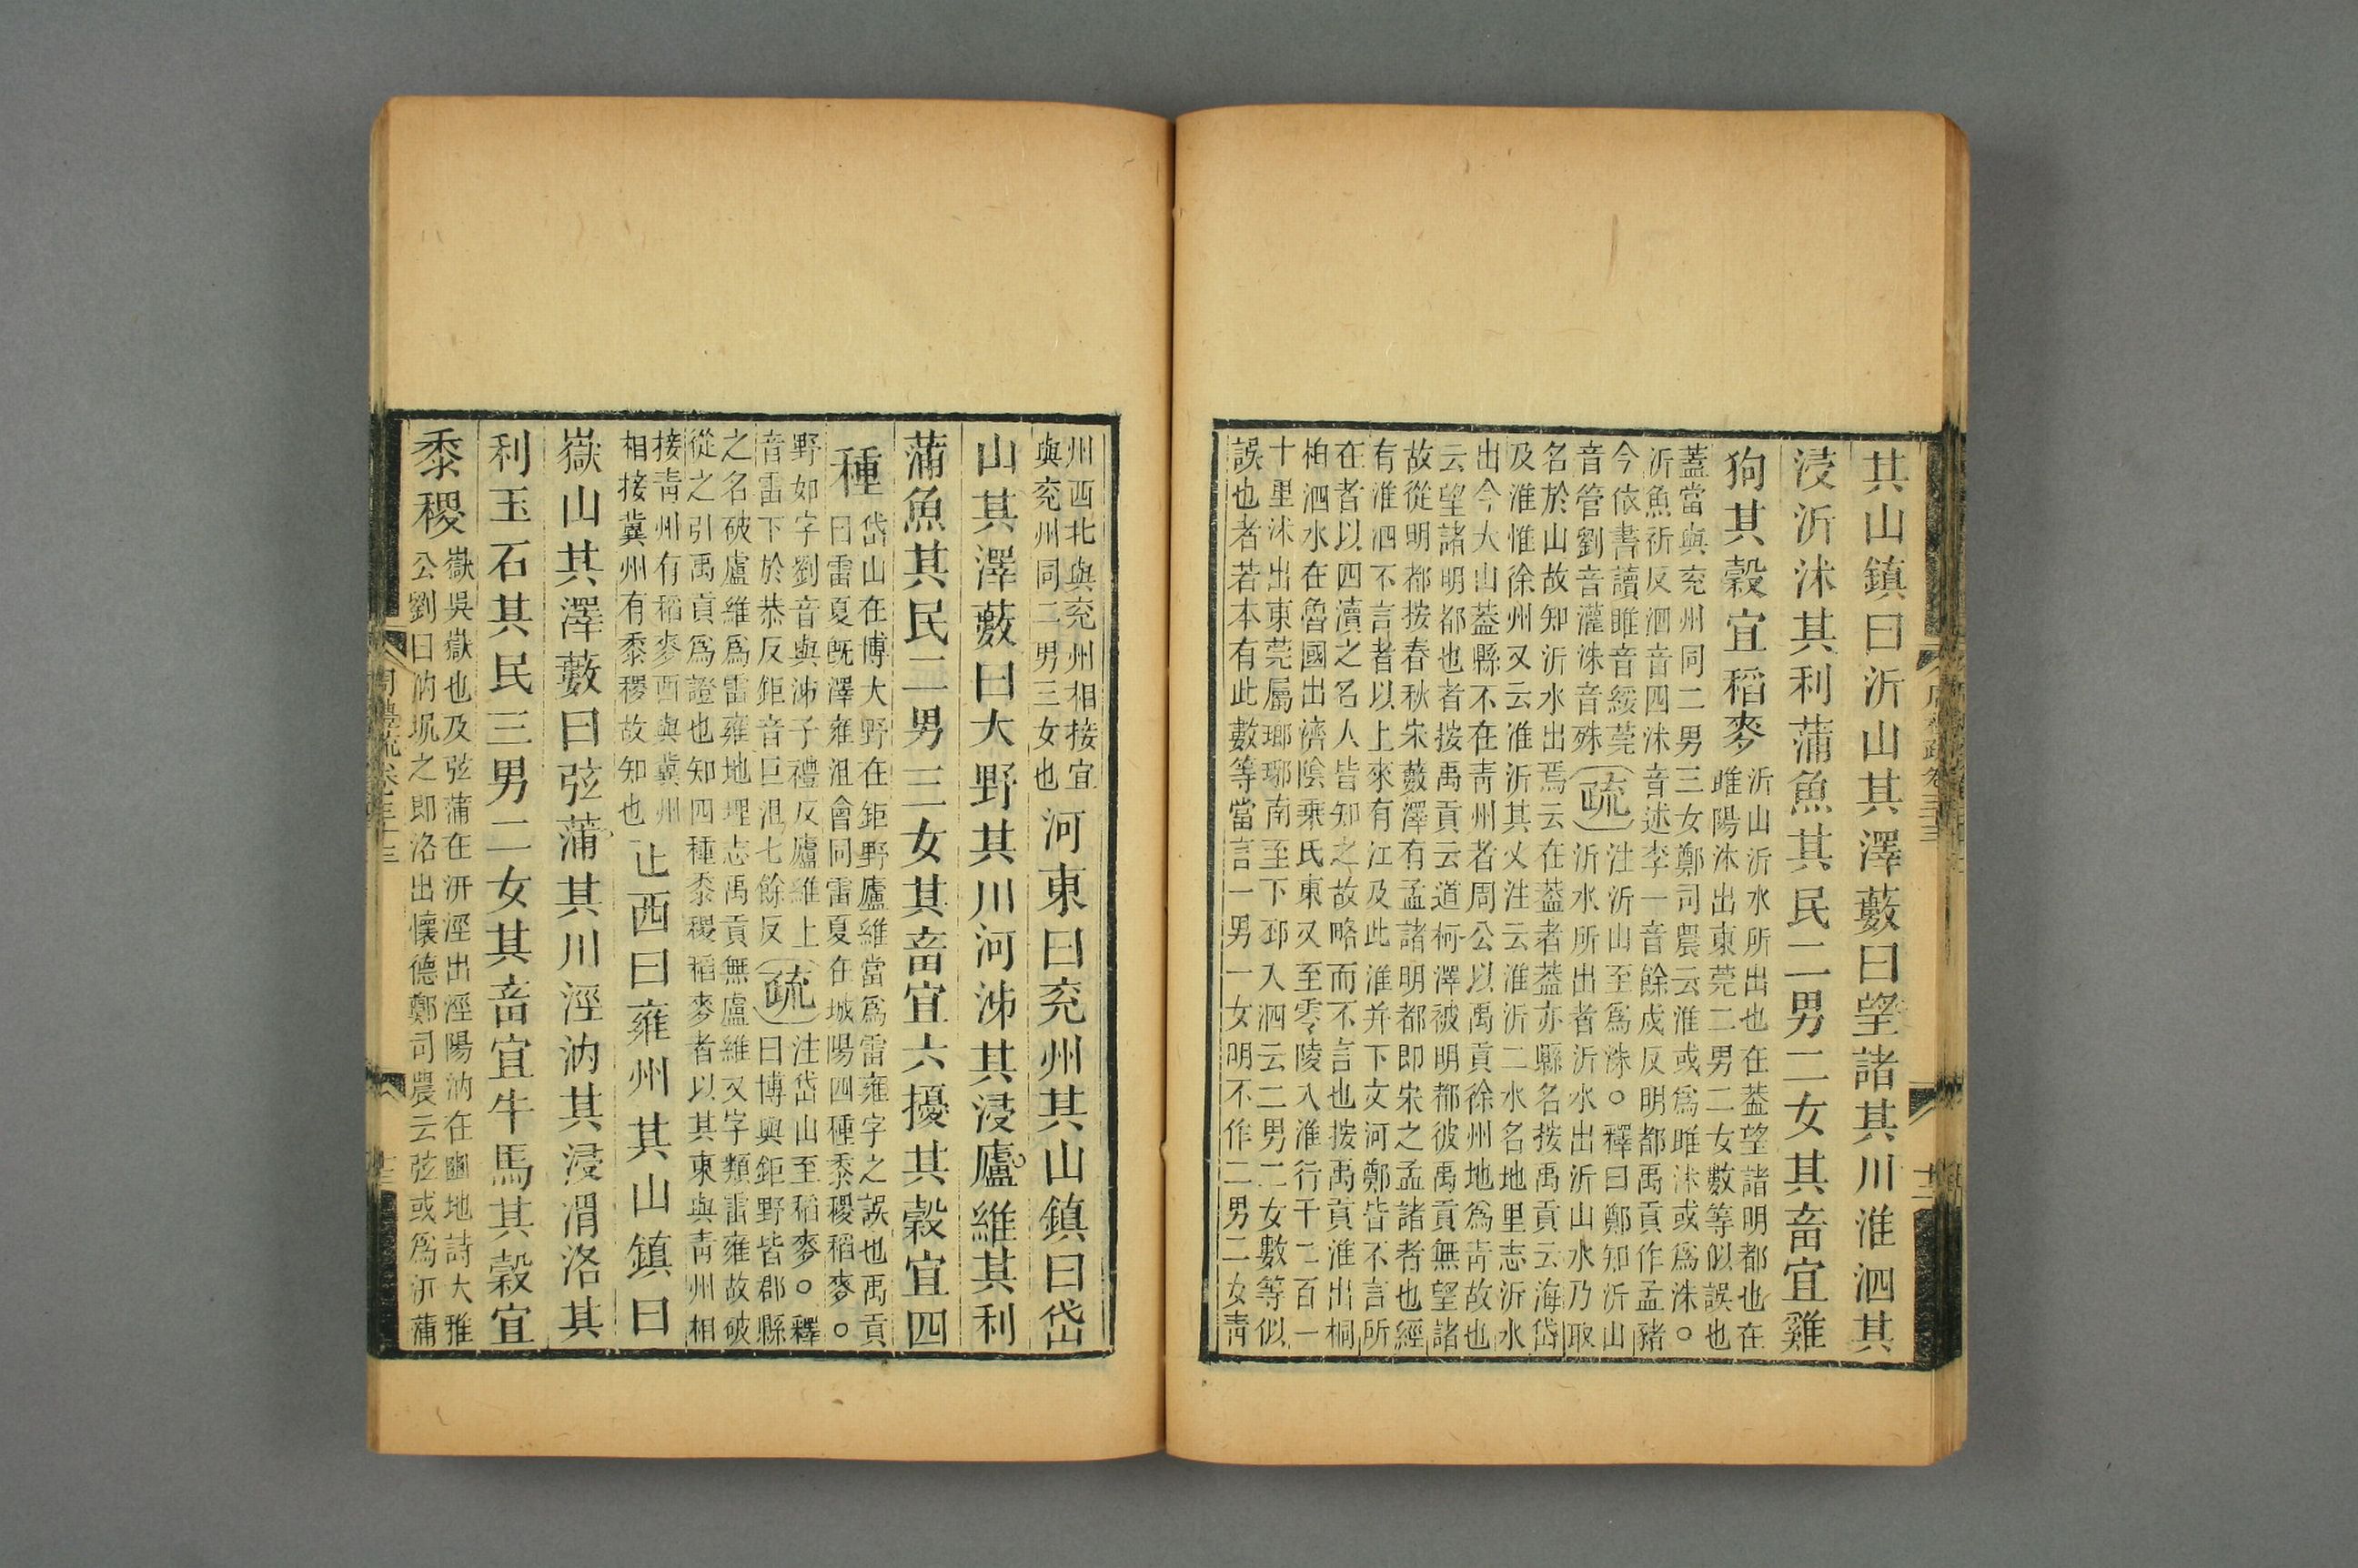 其山鎮曰沂山其澤藪曰望諸其川淮泗其
浸沂沭其利蒲魚其民二男二女其畜宜雞
狗其穀宜稻麥
沂山沂水所出也在葢望諸明都也在
睢陽沭出東莞二男二女數等似誤也
葢當與兗州同二男三女鄭司農云淮或爲睢沭或爲洙○
沂魚祈反泗音四沭音述李一音餘戍反明都禹貢作孟豬
今依書讀睢音綏莞
音管劉音灌洙音殊
疏
注沂山至爲洙○釋曰鄭知沂山
沂水所出者沂水出沂山水乃取
名於山故知沂水出焉云在葢者葢亦縣名按禹貢云海岱
及淮惟徐州又云淮沂其乂注云淮沂二水名地里志沂水
出今大山葢縣不在青州者周公以禹貢徐州地爲青故也
云望諸明都也者按禹貢云道柯澤被明都彼禹貢無望諸
故從明都按春秋宋藪澤有孟諸明都即宋之孟諸者也經
有淮泗不言者以上來有江及此淮并下文河鄭皆不言所
在者以四瀆之名人皆知之故略而不言也按禹貢淮出桐
柏泗水在魯國出濟陰乘氏東又至零陵入淮行千二百一
十里沭出東莞屬瑯琊南至下邳入泗云二男二女數等似
誤也者若本有此數等當言一男一女明不作二男二女青
州西北與兗州相接宜
與兗州同二男三女也
河東曰兗州其山鎮曰岱
山其澤藪曰大野其川河泲其浸廬維其利
蒲魚其民二男三女其畜宜六擾其穀宜四
種
岱山在博大野在鉅野廬維當爲雷雍字之誤也禹貢
曰雷夏旣澤雍沮會同雷夏在城陽四種黍稷稻麥○
野如字劉音與泲子禮反廬維上
音雷下於恭反鉅音巨沮七餘反
疏
注岱山至稻麥○釋
曰博與鉅野皆郡縣
之名破廬維爲雷雍地理志禹貢無廬維又字類雷雍故破
從之引禹貢爲證也知四種黍稷稻麥者以其東與青州相
接青州有稻麥西與冀州
相接冀州有黍稷故知也
正西曰雍州其山鎮曰
嶽山其澤藪曰弦蒲其川涇汭其浸渭洛其
利玉石其民三男二女其畜宜牛馬其穀宜
黍稷
嶽吳嶽也及弦蒲在汧涇出涇陽汭在豳地詩大雅
公劉曰汭坭之即洛出懷德鄭司農云弦或爲汧蒲